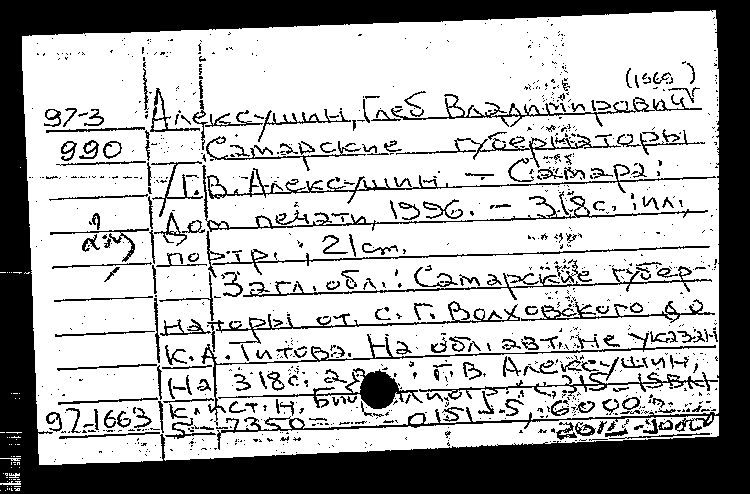 (1969 )
97-3 Алексушин, Глеб Владимирович
990 Самарские губернаторы
/Г.В. Алексушин. — Самара:
Дом печати, 1996. — 318с.: ил.,
портр.; 21 cm.
Загл. обл.: Самарские губер-
наторы от с.Г. Волховского до
К.А. Титова. На обл. авт. не указан
На 318с. : Г.В. Алексушин,
к.ист.н. с. 315 - ISBN
97-1663 5-7350- 0151-5, 6000